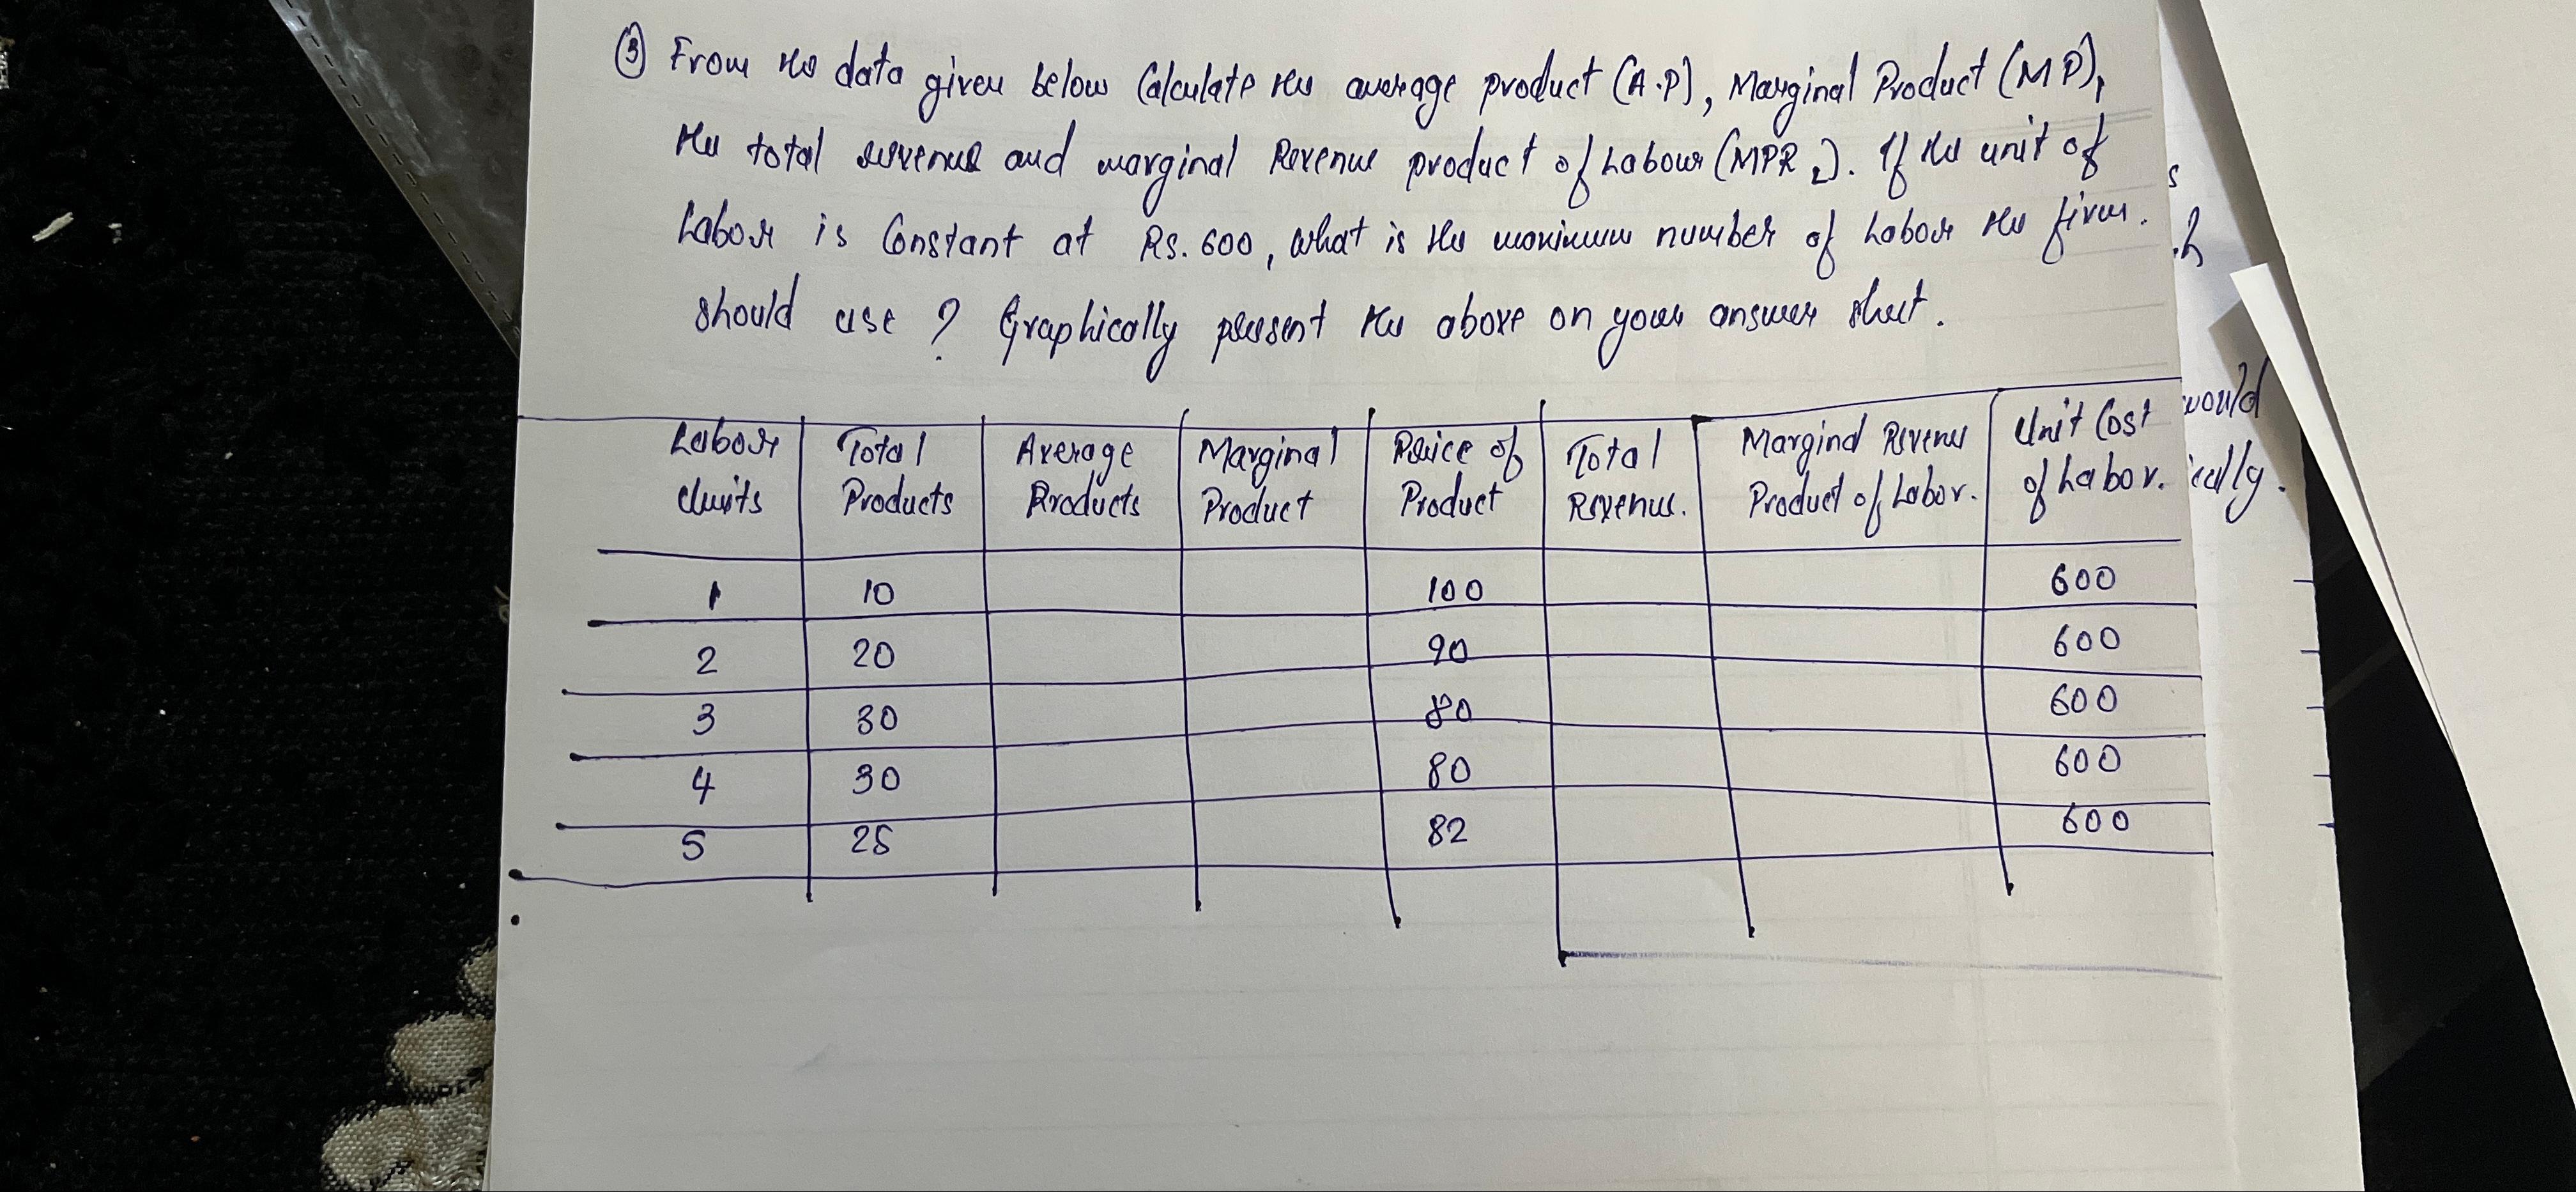 ③ From the data given below Calculate the average product (A.P), Marginal Product (MP),
the total revenue and marginal Revenue product of Labour (MPR L). If the unit of
Labour is Constant at Rs. 600, what is the maximum number of Labour the firm.
should use ? Graphically present the above on your answer sheet.
Labour Units | Total Products | Average Products | Marginal Product | Price of Product | Total Revenue. | Marginal Revenue Product of Labor. | Unit Cost of Labor.
1 | 10 | | | 100 | | | 600
2 | 20 | | | 90 | | | 600
3 | 30 | | | 80 | | | 600
4 | 30 | | | 80 | | | 600
5 | 25 | | | 82 | | | 600
s
would
ically.